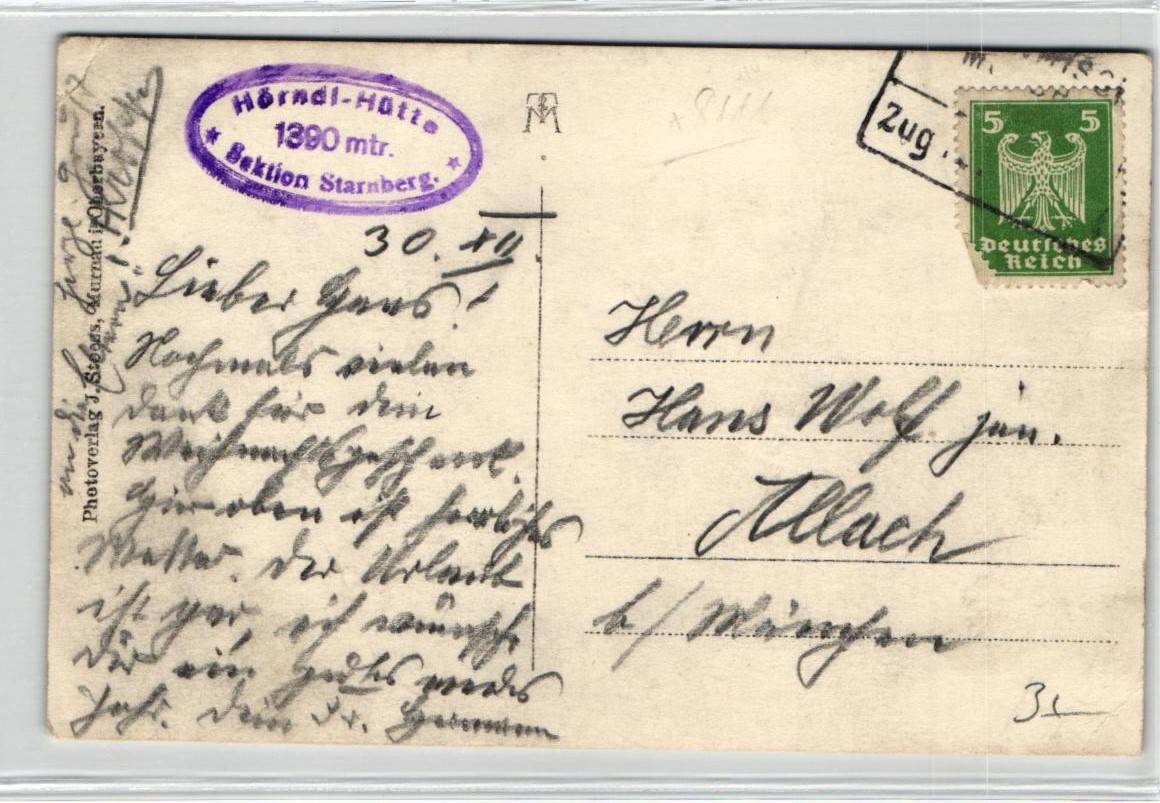 Hörndl-Hütte
1390 mtr.
Sektion Starnberg.
30. XII.
Lieber Hans!
Nochmals vielen
Dank für dein
Weihnachtsgeschenk.
Hier oben ist herrliches
Wetter. Der Urlaub
ist gar, ich wünsche
Dir ein gutes neues
Jahr. Dein Fr. Hermann
Photoverlag J. Stooss, Murnau i. Oberbayern.
Zug
5 5
Deutsches
Reich
Herrn
Hans Wolf jun.
Allach
b/ München